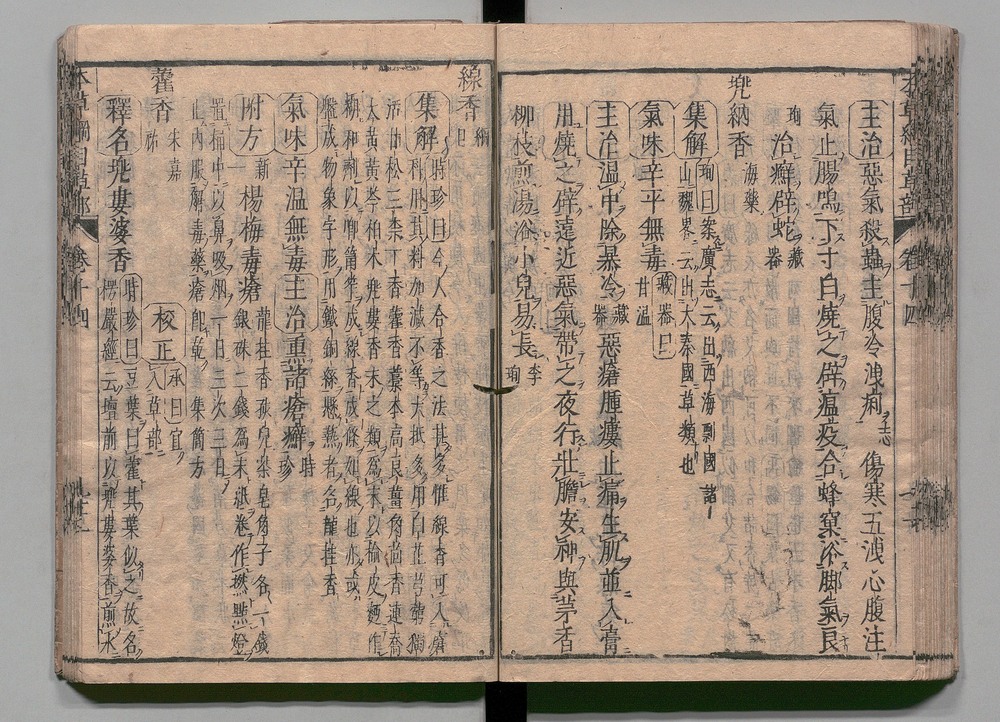 主治惡氣殺蟲主腹冷洩痢志傷寒五洩心腹注
氣止腸鳴下寸白燒之辟瘟疫合蜂窠浴脚氣良
珣治癬辟蛇藏器
兜納香海藥
集解珣曰案廣志云出西海剽國諸
山魏略云出大秦國草類也
氣味辛平無毒藏器曰甘溫
主治溫中除暴冷藏器惡瘡腫瘻止痛生肌並入膏
用燒之辟遠近惡氣帶之夜行壯膽安神與茅香
柳枝煎湯浴小兒易長李珣
線香綱目
集解時珍曰今人合香之法甚多惟線香可入瘡
科用其料加減不等大抵多用白芷芎藭獨
活甘松三柰丁香藿香藁本高良薑角茴香連喬
大黃黃芩柏木兜婁香末之類為末以榆皮麵作
糊和劑以唧筩笮成線香成條如線也亦或
盤成物象字形用鐵銅絲懸爇者名龍挂香
氣味辛溫無毒主治熏諸瘡癬時珍
附方新一楊梅毒瘡龍挂香孩兒茶皂角子各一錢
銀硃二錢為末紙卷作撚點燈
置桶中以鼻吸烟一日三次三日
止內服解毒藥瘡即乾集簡方
藿香宋嘉祐
校正承曰宜入草部
釋名兜婁婆香時珍曰豆葉曰藿其葉似之故名
楞嚴經云壇前以兜婁婆香煎水
卷十四
卷十四